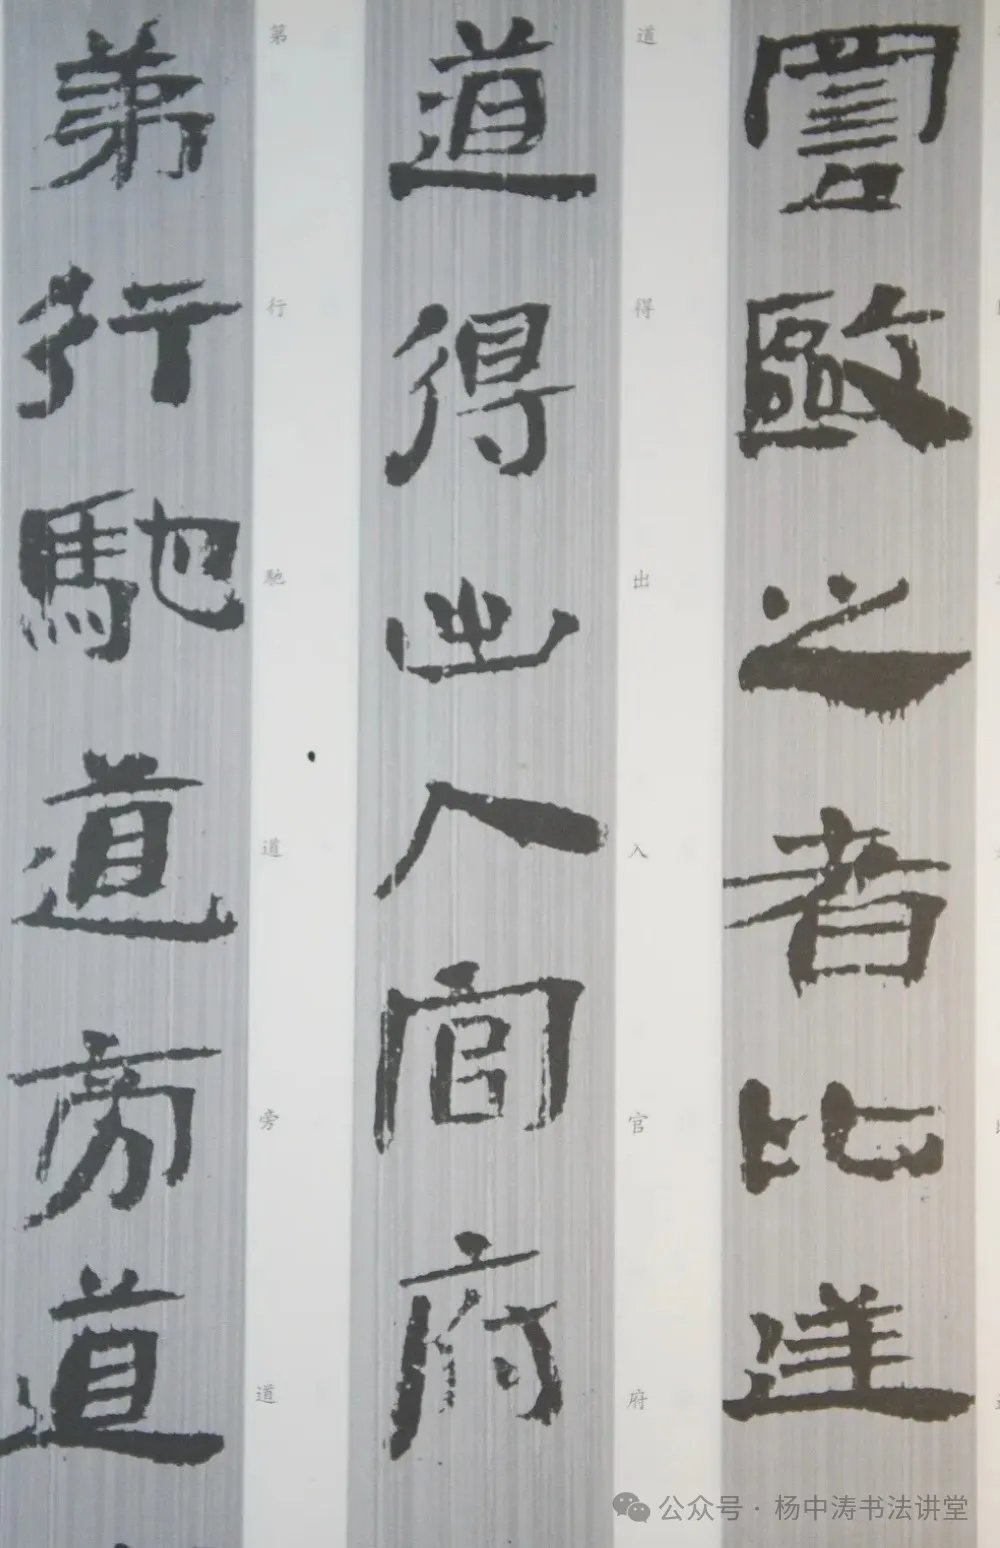 詈敺之者比逆
道得出入官府
道得出入官府
第行馳道旁道
第行馳道旁道
公众号·杨中涛书法讲堂